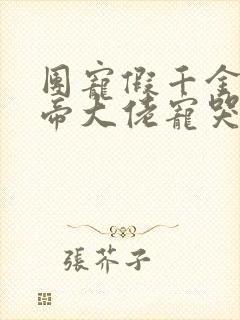 團寵假千金
帝大佬寵哭
張芥子